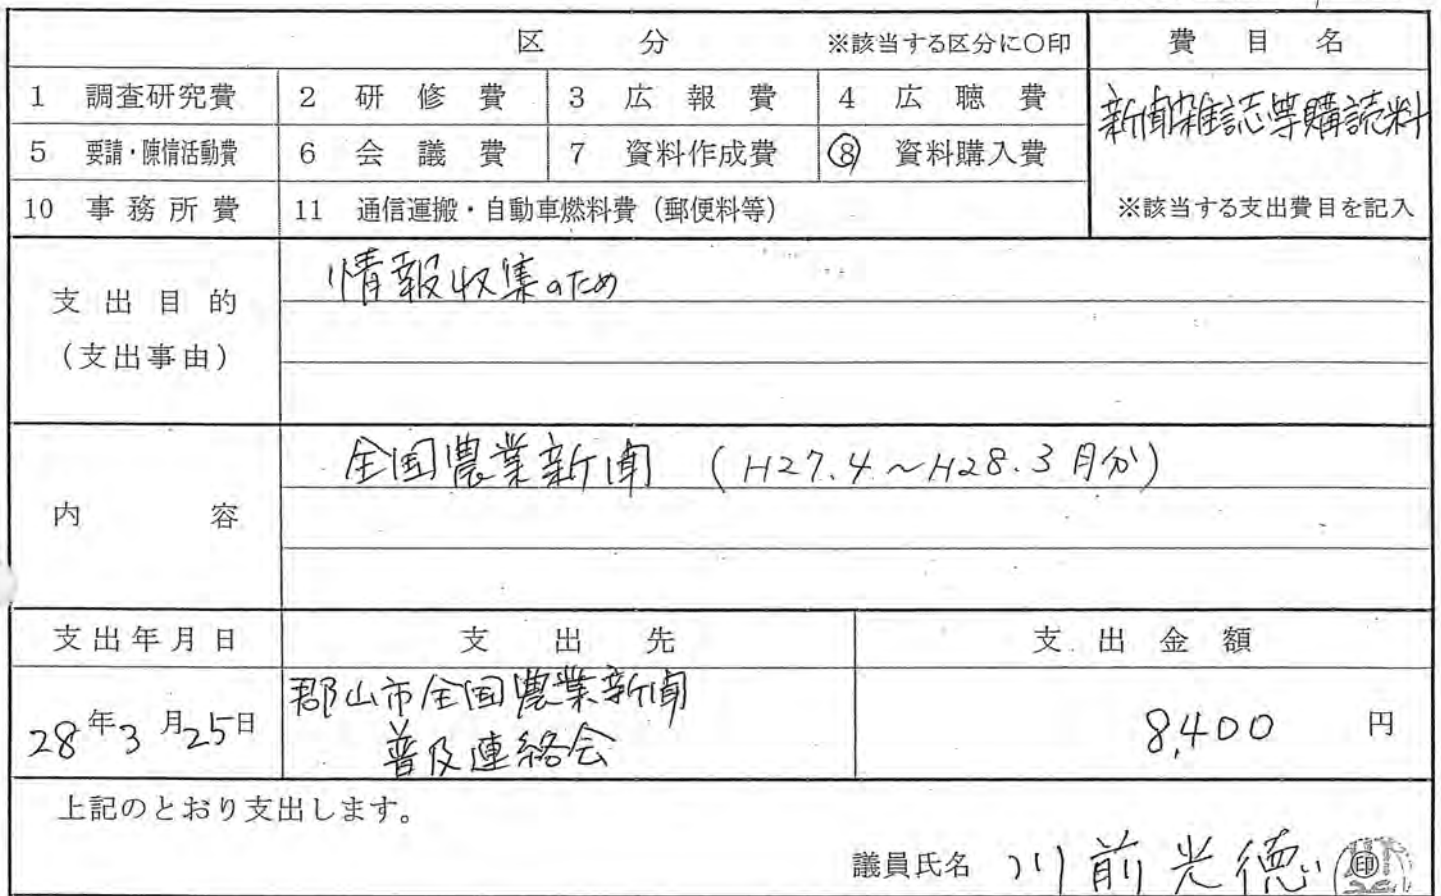 区 分 ※該当する区分に○印 費目名
1 調査研究費 2 研修費 3 広報費 4 広聴費 新聞雑誌等購読料
5 要請・陳情活動費 6 会議費 7 資料作成費 ⑧ 資料購入費
10 事務所費 11 通信運搬・自動車燃料費（郵便料等） ※該当する支出費目を記入
支出目的 情報収集のため
（支出事由）
内容 全国農業新聞 (H27.4～H28.3月分)
支出年月日 支出先 支出金額
28年3月25日 郡山市全国農業新聞 8,400 円
普及連絡会
上記のとおり支出します。
議員氏名 川前光徳 ㊞